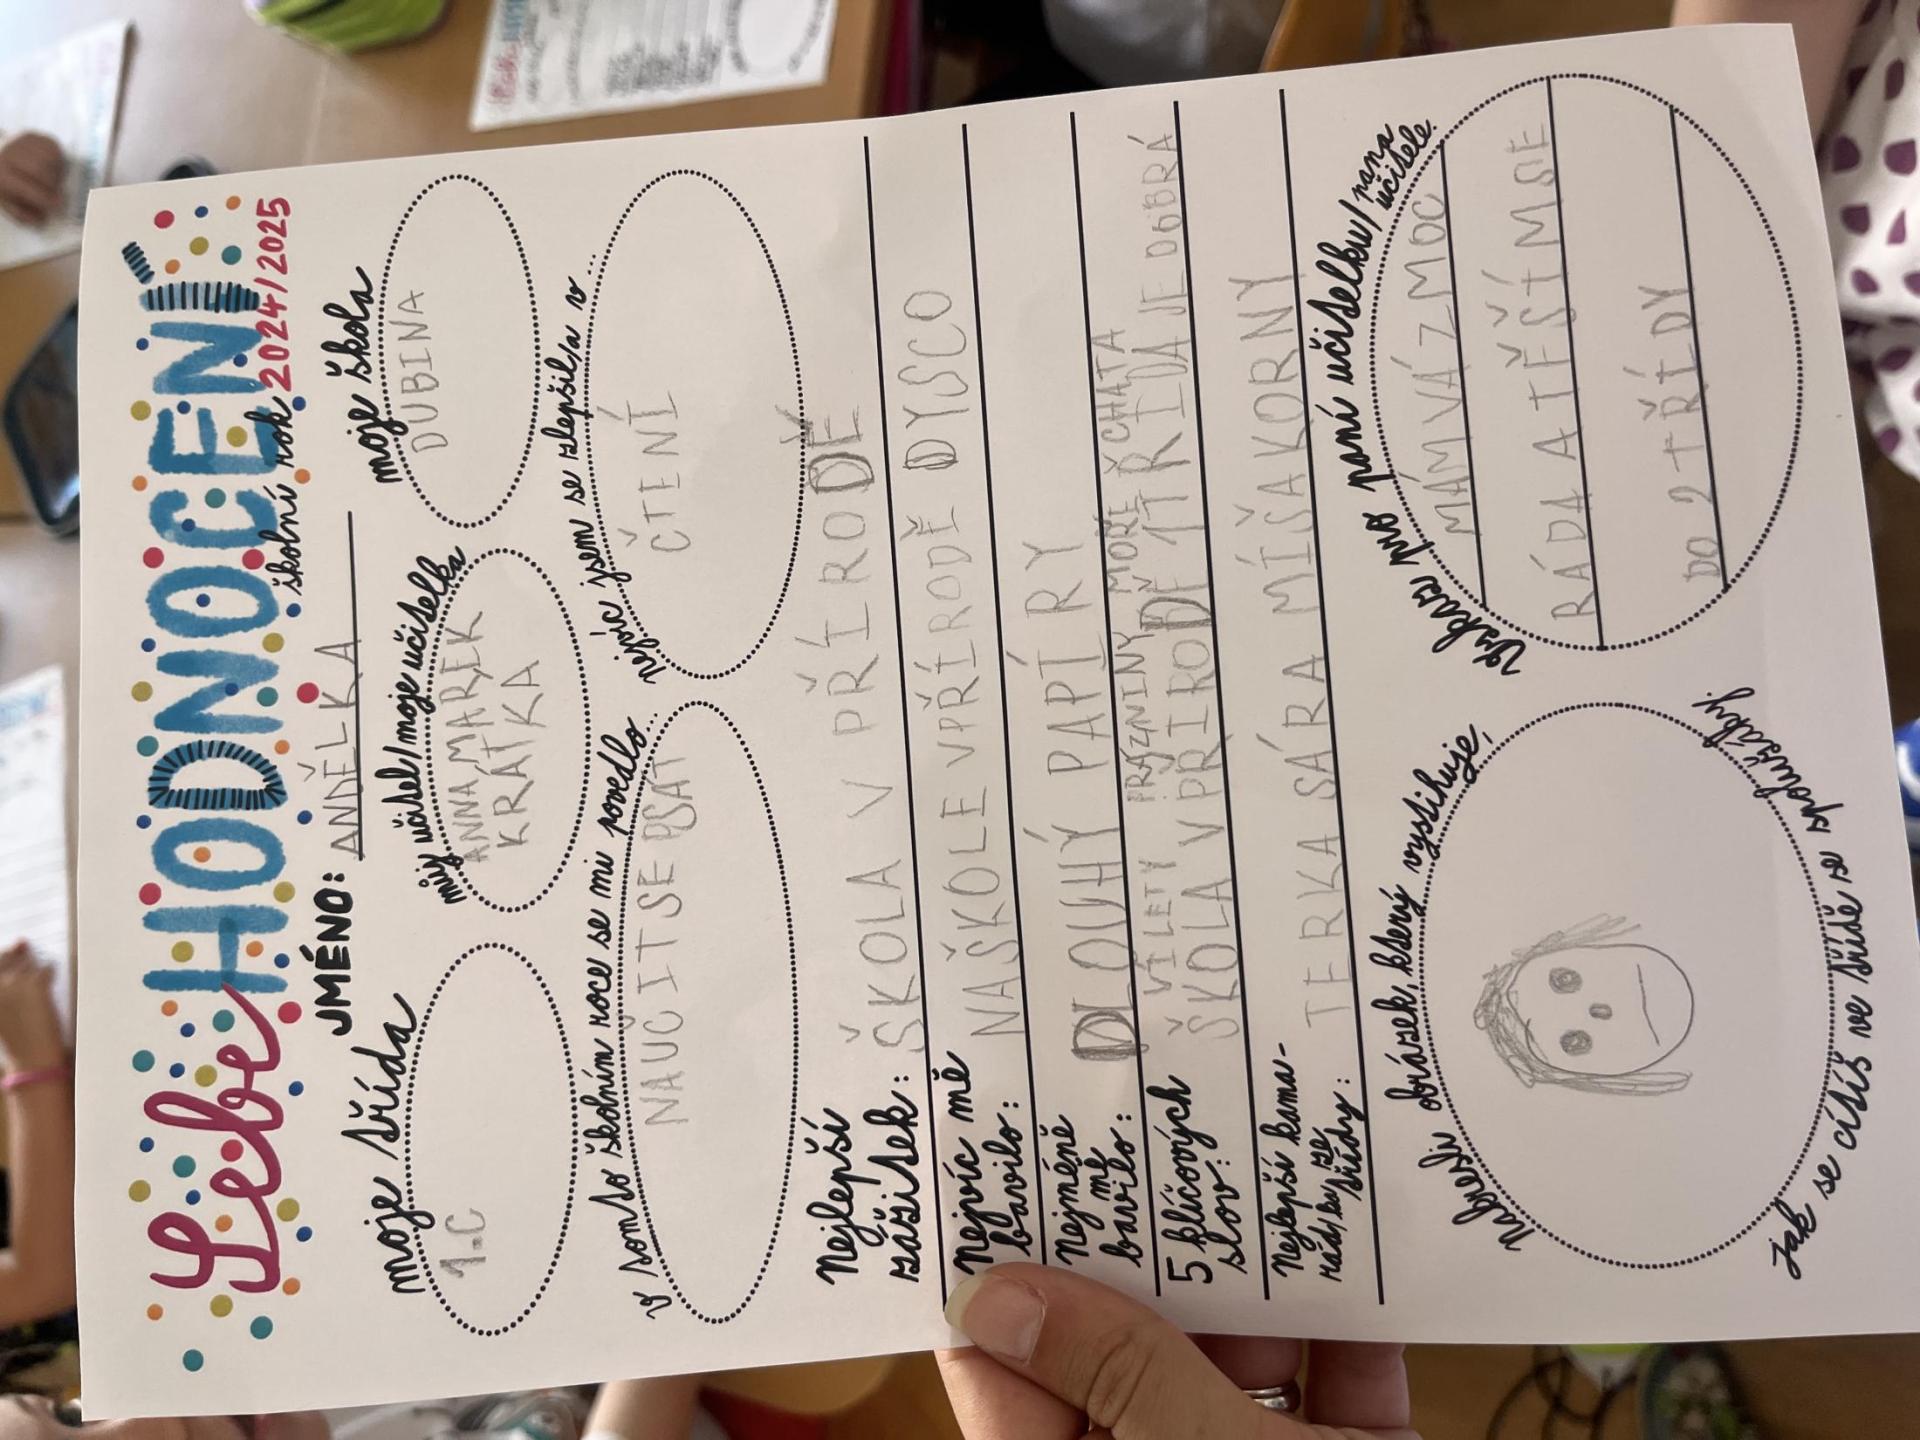 Sebe HODNOCENÍ
školní rok 2024/2025
JMÉNO: ANDĚLKA
moje třída
1.C
můj učitel/moje učitelka
ANNA MAREK
KRÁTKA
moje škola
DUBINA
v tomto školním roce se mi povedlo...
NAUČIT SE PSÁT
nejvíc jsem se zlepšil/a v...
ČTENÍ
Nejlepší zážitek: ŠKOLA V PŘÍRODĚ
Nejvíc mě bavilo: NAŠKOLE VPŘÍRODĚ DYSCO
Nejméně mě bavilo: DLOUHÝ PAPÍRY
5 klíčových slov:
VÍLETY PRÁZNINY MOŘE CHATA
ŠKOLA VPŘIRODĚ 1TŘÍDA JE DOBRÁ
Nejlepší kamarád/ka ze třídy: TERKA SÁRA MÍŠA KORNY
Nakresli obrázek, který vystihuje,
jak se cítíš ve třídě se spolužáky
Vzkaz pro paní učitelku/pana učitele
MÁM VÁZ MOC
RÁDA A TĚŠÍ MSE
DO 2 TŘÍDY